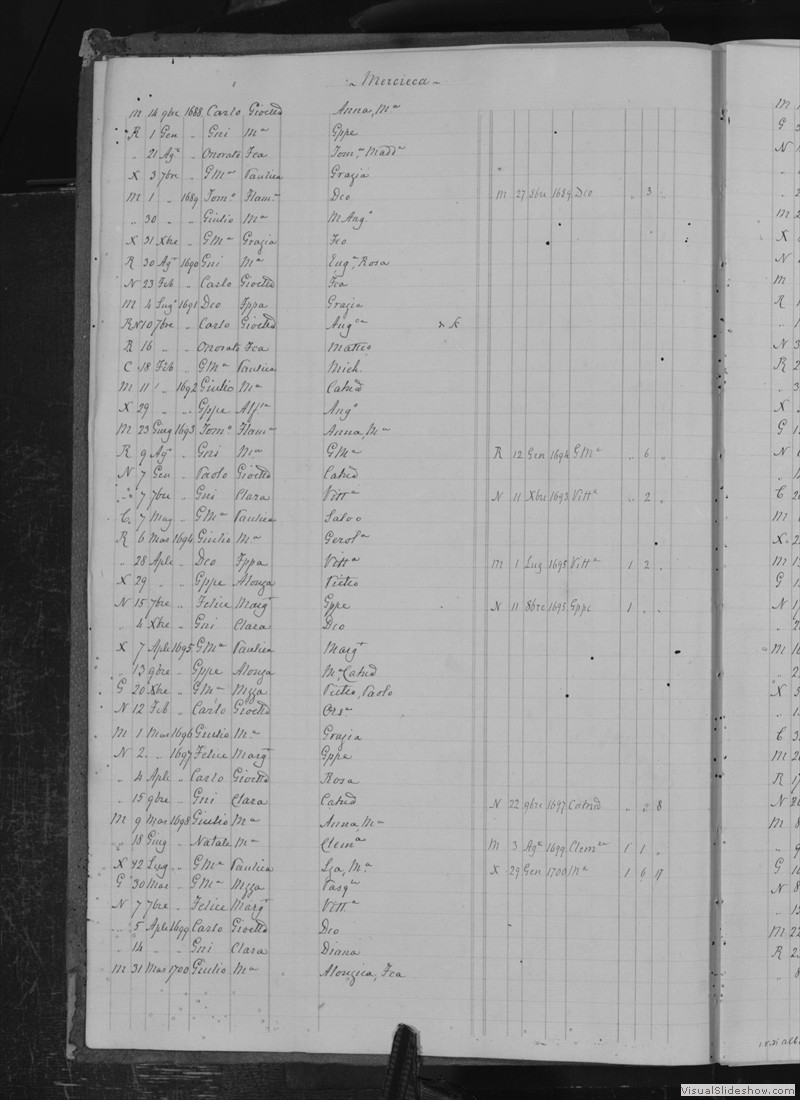 ~ Mercieca ~
M 14 9bre 1688 Carlo Gioetta Anna, Ma
R 1 Gen " Gni Ma Gppe
" 21 Aga " Onorato Fca Tom.a Madda
X 3 7bre " GMa Paulica Grazia
M 1 " 1689 Tomo Flam.a Dco M 27 8bre 1689 Dco " 3 "
" 30 " " Giulio Ma M Anga
X 31 Xbre " GMa Grazia Fco
R 30 Ago 1690 Gni Ma Euga, Rosa
N 23 Feb " Carlo Gioetta Fca
M 4 Lugo 1691 Dco Fppa Grazia
RN 10 7bre " Carlo Gioetta Angca
R 16 " " Onorato Fca Matteo
C 18 Feb " GMa Paulica Mich.
M 11 " 1692 Giulio Ma Catna
X 29 " " Gppe Alf.a Ango
M 23 Giug 1693 Tomo Flam.a Anna, Ma
R 9 Ago " Gni Ma GMa R 12 Gen 1694 GMa " 6 "
N 7 Gen " Paolo Gioetta Catna
" 7 7bre " Gni Clara Vitta N 11 Xbre 1693 Vitta " 2 "
C 7 Mag " GMa Paulica Salvo
R 6 Mar 1694 Giulio Ma Gerola
" 28 Aple " Dco Fppa Vitta M 1 Lug 1695 Vitta 1 2 "
X 29 " " Gppe Alonza Pietro
N 15 7bre " Felice Margta Gppe N 11 8bre 1695 Gppe 1 " "
" 4 Xbre " Gni Clara Dco
X 7 Aple 1695 GMa Paulica Margta
" 13 9bre " Gppe Alonza Ma, Catna
G 20 Xbre " GMa Nzza Pietro, Paolo
N 12 Feb " Carlo Gioetta Orsa
M 1 Mar 1696 Giulio Ma Grazia
N 2 " 1697 Felice Margta Gppe
" 4 Aple " Carlo Gioetta Rosa
" 15 9bre " Gni Clara Catna N 22 9bre 1697 Catna " 2 8
M 9 Mar 1698 Giulio Ma Anna, Ma
" 18 Giug " Natale Ma Clema M 3 Aga 1699 Clemza 1 1 "
X 12 Lug " GMa Paulica Lza, Ma X 29 Gen 1700 Ma 1 6 17
G 30 Mar " GMa Nzza Pasqa
N 7 7bre " Felice Margta Vitta
" 5 Aple 1699 Carlo Gioetta Dco
" 14 " " Gni Clara Diana
M 31 Mar 1700 Giulio Ma Alongica, Fca
VisualSlideshow.com